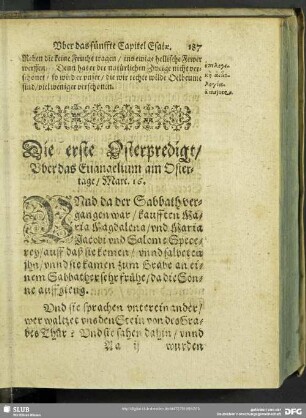 Vber das fünffte Capitel Esaiæ. 187
Reben die keine Früchte tragen / ins ewige hellische Fewer
werffen. Denn hat er der natürlichen Zweige nicht ver-
schonet / so wird er vnser / die wir rechte wilde Oelbeume
sind / viel weniger verschonen.
Die erste Osterpredigt /
Vber das Euangelium am Oster-
tage / Marc. 16.
VNnd da der Sabbath ver-
gangen war / kaufften Ma-
ria Magdalena / vnd Maria
Jacobi vnd Salome Spece-
rey / auff daß sie kemen / vnnd salbeten
jhn / vnnd sie kamen zum Grabe an ei-
nem Sabbather sehr frühe / da die Son-
ne auffgieng.
Vnd sie sprachen vntereinander /
wer waltzet vns den Stein von des Gra-
bes Thür? Vnd sie sahen dahin / vnnd
Na ij wurden
SLUB
DFG